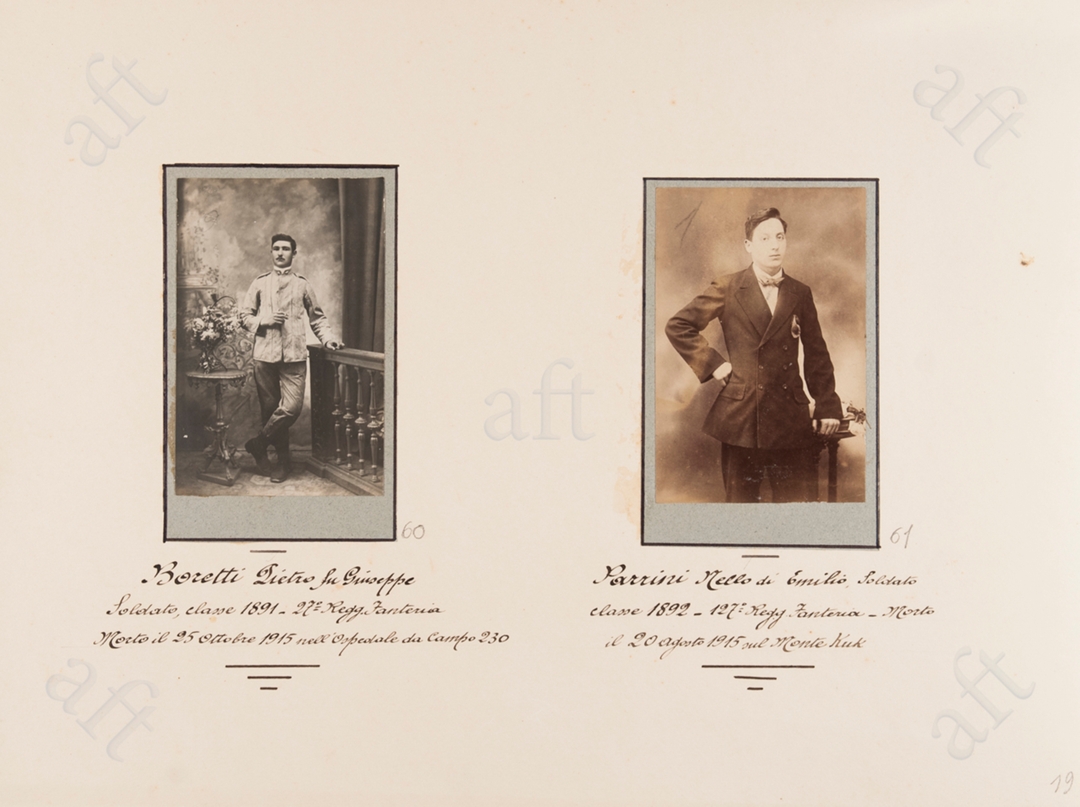 aft
aft
aft
60
61
Boretti Pietro fu Giuseppe
Soldato, classe 1891 - 27º Regg. Fanteria
Morto il 25 Ottobre 1915 nell'Ospedale da Campo 230
Parrini Nello di Emilio, Soldato
classe 1892 - 127º Regg. Fanteria - Morto
il 20 agosto 1915 sul Monte Kuk
aft
aft
19